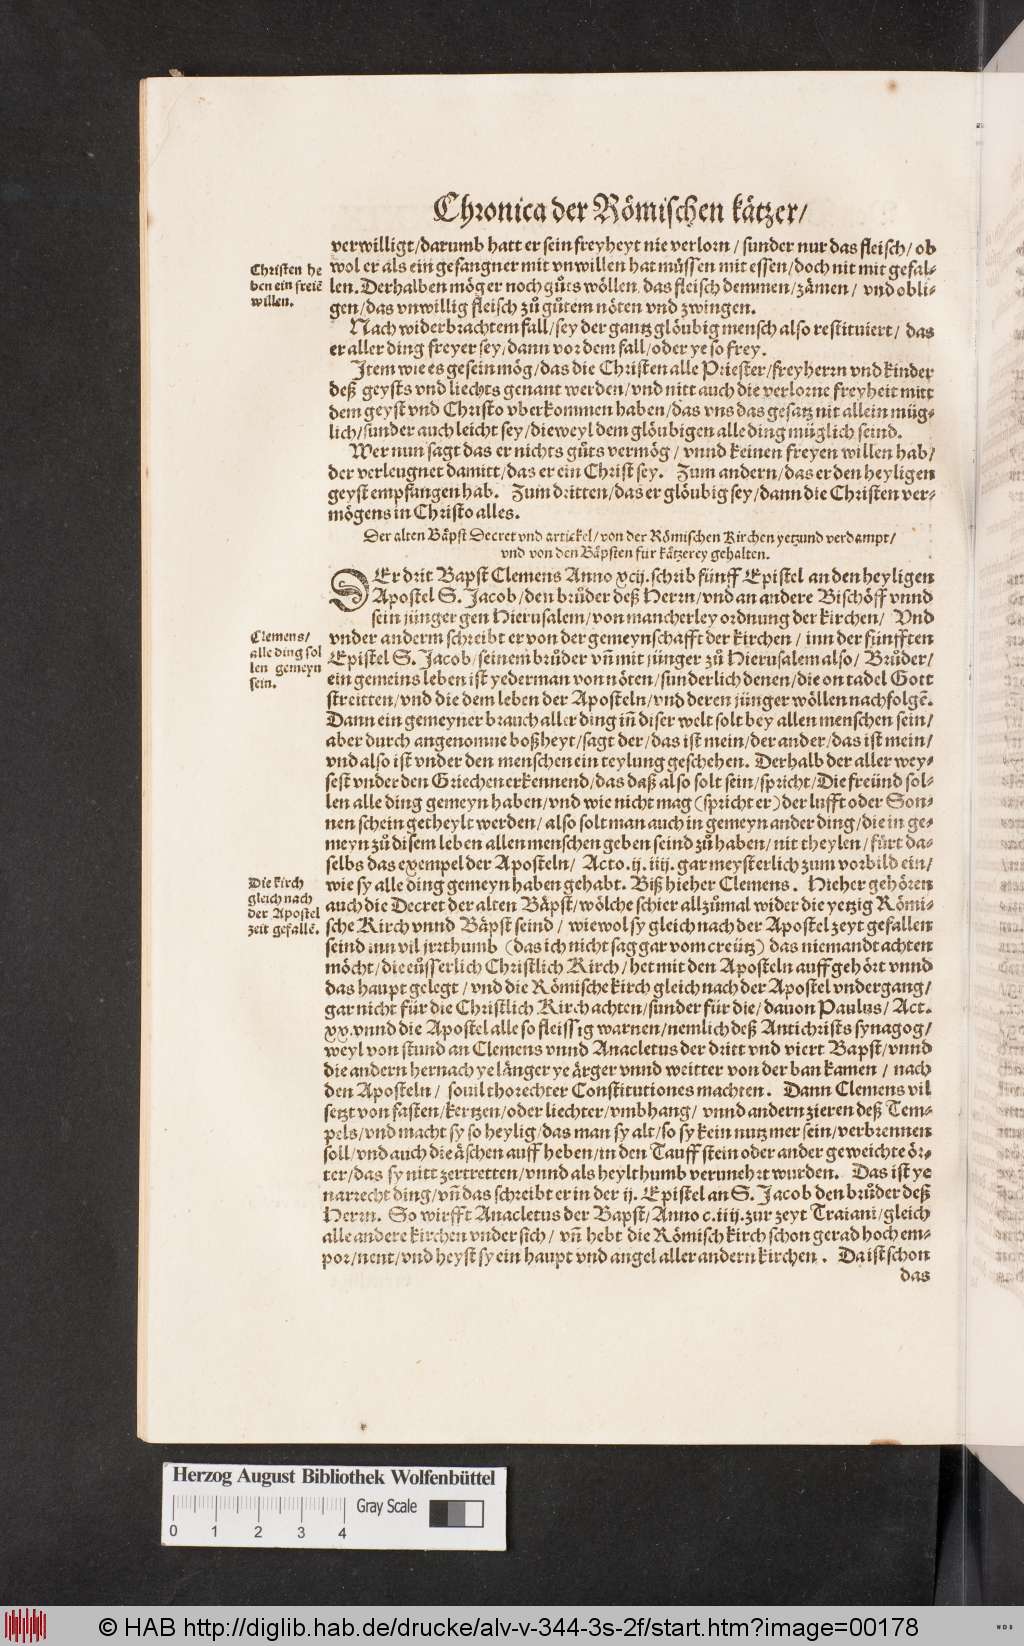 Chronica der Römischen kätzer/
verwilligt/darumb hatt er sein freyheyt nie verlorn/sunder nur das fleisch/ob
wol er als ein gefangner mit vnwillen hat müssen mit essen/doch nit mit gefal-
len. Derhalben mög er noch gůts wöllen, das fleisch demmen/zämen/ vnd obli-
gen/das vnwillig fleisch zů gůtem nöten vnd zwingen.
Christen he
ben ein freiē
willen.
Nach widerbrachtem fall/sey der gantz glöubig mensch also restituiert/ das
er aller ding freyer sey/dann vor dem fall/oder ye so frey.
Item wie es gesein mög/das die Christen alle Priester/freyherrn vnd kinder
deß geysts vnd liechts genant werden/vnd nitt auch die verlorne freyheit mitt
dem geyst vnd Christo vberkommen haben/das vns das gesatz nit allein müg-
lich/sunder auch leicht sey/dieweyl dem glöubigen alle ding müglich seind.
Wer nun sagt das er nichts gůts vermög/ vnnd keinen freyen willen hab/
der verleugnet damitt/das er ein Christ sey. Zum andern/das er den heyligen
geyst empfangen hab. Zum dritten/das er glöubig sey/dann die Christen ver-
mögens in Christo alles.
Der alten Bäpst Decret vnd artickel/von der Römischen Kirchen yetzund verdampt/
vnd von den Bäpsten für kätzerey gehalten.
DEr drit Bapst Clemens Anno xcij. schrib fünff Epistel an den heyligen
Apostel S. Jacob/den brůder deß Herrn/vnd an andere Bischöff vnnd
sein jünger gen Hierusalem/von mancherley ordnung der kirchen/ Vnd
vnder anderm schreibt er von der gemeynschafft der kirchen/ inn der fünfften
Epistel S. Jacob/seinem brůder vñ mit jünger zů Hierusalem also/ Brůder/
ein gemeins leben ist yederman von nöten/sunderlich denen/die on tadel Gott
streitten/vnd die dem leben der Aposteln/vnd deren jünger wöllen nachfolgē.
Clemens/
alle ding sol
len gemeyn
sein.
Dann ein gemeyner brauch aller ding iñ diser welt solt bey allen menschen sein/
aber durch angenomne boßheyt/sagt der/das ist mein/der ander/das ist mein/
vnd also ist vnder den menschen ein teylung geschehen. Derhalb der aller wey-
sest vnder den Griechen erkennend/das daß also solt sein/spricht/Die freünd sol-
len alle ding gemeyn haben/vnd wie nicht mag (spricht er) der lufft oder Son-
nen schein getheylt werden/ also solt man auch in gemeyn ander ding/die in ge-
meyn zů disem leben allen menschen geben seind zů haben/nit theylen/fürt da-
selbs das exempel der Aposteln/ Acto. ij. iiij. gar meysterlich zum vorbild ein/
wie sy alle ding gemeyn haben gehabt. Biß hieher Clemens. Hieher gehören
auch die Decret der alten Bäpst/wölche schier allzůmal wider die yetzig Römi-
sche Kirch vnnd Bäpst seind/ wiewol sy gleich nach der Apostel zeyt gefallen
Die kirch
gleich nach
der Apostel
zeit gefallē.
seind inn vil jrrthumb (das ich nicht sag gar vom creütz) das niemandt achten
möcht/die eüsserlich Christlich Kirch/het mit den Aposteln auffgehört vnnd
das haupt gelegt/ vnd die Römische kirch gleich nach der Apostel vndergang/
gar nicht für die Christlich Kirch achten/sunder für die/dauon Paulus/ Act.
xx. vnnd die Apostel alle so fleissig warnen/nemlich deß Antichrists synagog/
weyl von stund an Clemens vnnd Anacletus der dritt vnd viert Bapst/vnnd
die andern hernach ye länger ye ärger vnnd weitter von der ban kamen/ nach
den Aposteln/ souil thorechter Constitutiones machten. Dann Clemens vil
setzt von fasten/kertzen/oder liechter/vmbhang/ vnnd andern zieren deß Tem-
pels/vnd macht sy so heylig/das man sy alt/so sy kein nutz mer sein/verbrennen
soll/vnd auch die äschen auff heben/in den Tauffstein oder ander geweichte ör-
ter/das sy nitt zertretten/vnnd als heylthumb verunehrt wurden. Das ist ye
narrecht ding/vñ das schreibt er in der ij. Epistel an S. Jacob den brůder deß
Herrn. So wirfft Anacletus der Bapst/Anno c. iiij. zur zeyt Traiani/gleich
alle andere kirchen vnder sich/ vñ hebt die Römisch kirch schon gerad hoch em-
por/nent/vnd heyst sy ein haupt vnd angel aller andern kirchen. Da ist schon
das
Herzog August Bibliothek Wolfenbüttel
Gray Scale
0 1 2 3 4
© HAB http://diglib.hab.de/drucke/alv-v-344-3s-2f/start.htm?image=00178